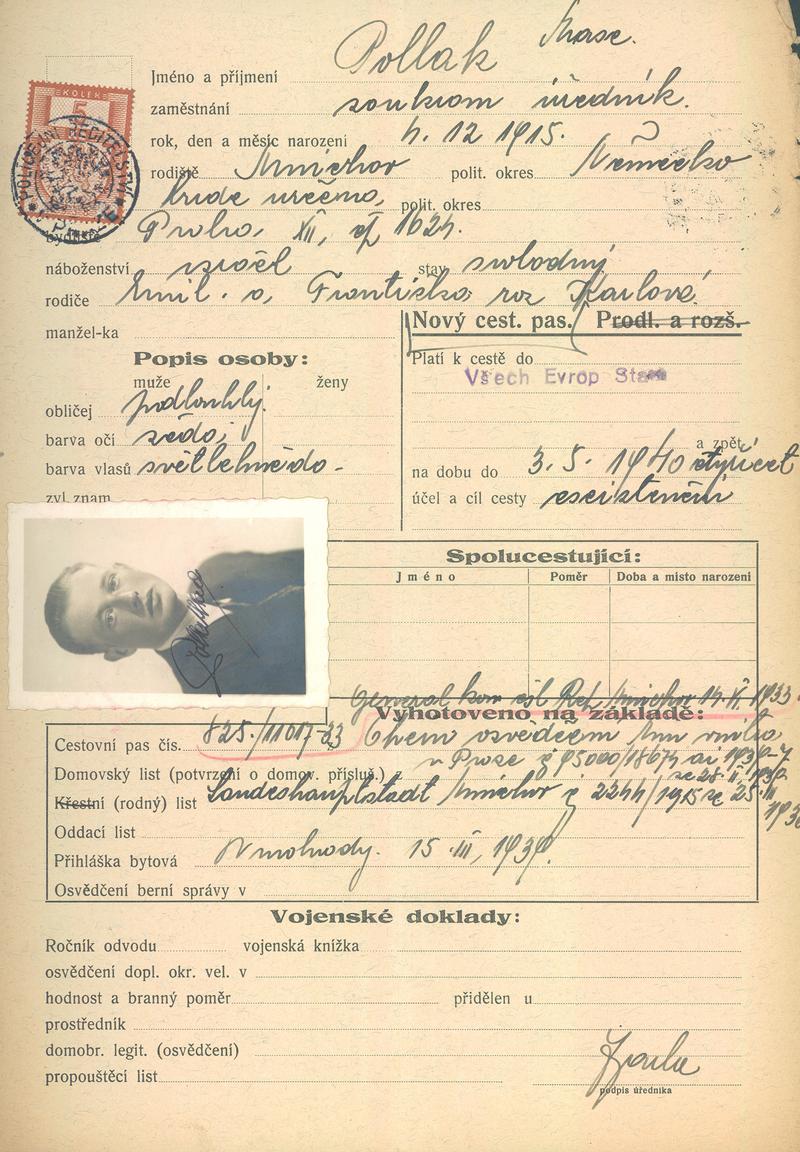 Pollak
Jméno a příjmení
5
POLICEJNÍ ŘEDITELSTVÍ
zaměstnání soukrom úředník.
rok, den a měsíc narození 4. 12 1915.
rodiště Mnichov polit. okres Německo
bude určeno, polit. okres
bydliště Praha, XII, čp 1624.
náboženství israel stav svobodný
rodiče Emil. a Františka roz Karlová
manžel-ka
Nový cest. pas. Prodl. a rozš.
Popis osoby:
Platí k cestě do
Všech Evrop Stá
muže ženy
obličej podlouhlý.
barva očí šedo,
barva vlasů světlehnědo-
zvl. znam.
a zpět
na dobu do 3. 5. 1940 čtyřicet
účel a cíl cesty
Spolucestující:
Jméno Poměr Doba a místo narození
General kon čsl Rep Mnichov 14. VI. 1933
Vyhotoveno na základě:
Cestovní pas čís. 825./11017-33
Domovský list (potvrzení o domov. přísluš.) z
v Praze
Křestní (rodný) list Landeshauptstadt Mnichov č 2244/1915
Oddací list
Přihláška bytová Vinohrady. 15 III, 1939.
Osvědčení berní správy v
Vojenské doklady:
Ročník odvodu vojenská knížka
osvědčení dopl. okr. vel. v
hodnost a branný poměr přidělen u
prostředník
domobr. legit. (osvědčení)
propouštěcí list
podpis úředníka